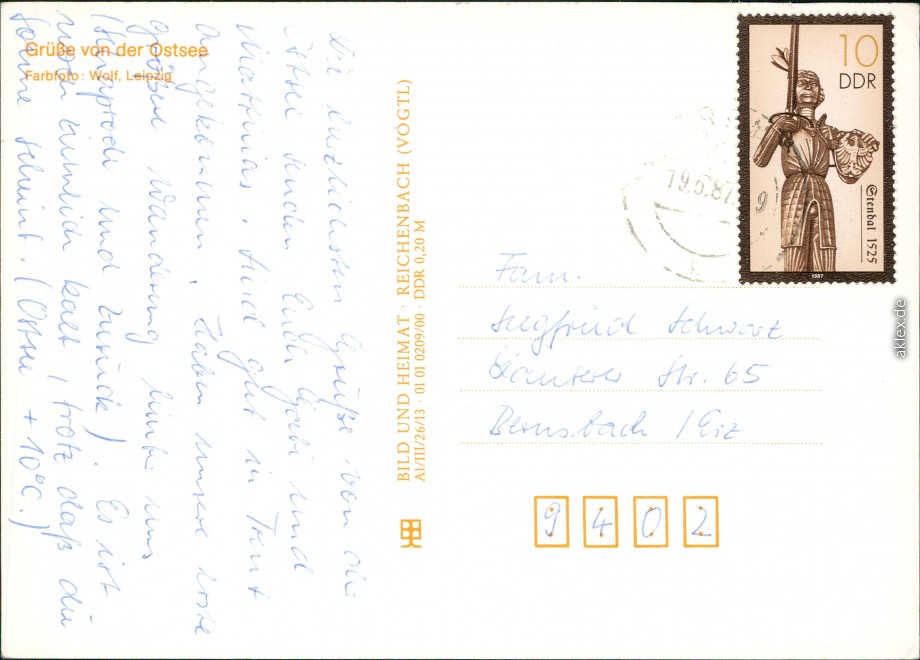 Grüße von der Ostsee
Farbfoto: Wolf, Leipzig
Die herzlichsten Grüße von der
Ostsee senden Euch Gabi und
Matthias. Sind gut in
angekommen. Haben unsere erste
größere Wanderung hinter uns
und zurück). Es ist
nur ziemlich kalt, trotz daß die
Sonne scheint. (Ostsee + 10°C.)
BILD UND HEIMAT · REICHENBACH (VOGTL)
A1/III/26/13 · 01 01 0209/00 · DDR 0,20 M
10
DDR
Stendal 1525
1987
19.5.87
9
Fam.
Siegfried Schwarz
Str. 65
Bernsbach / Erz
9402
aklex.de